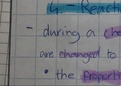 4. React
- during a che
are changed to
• the proport